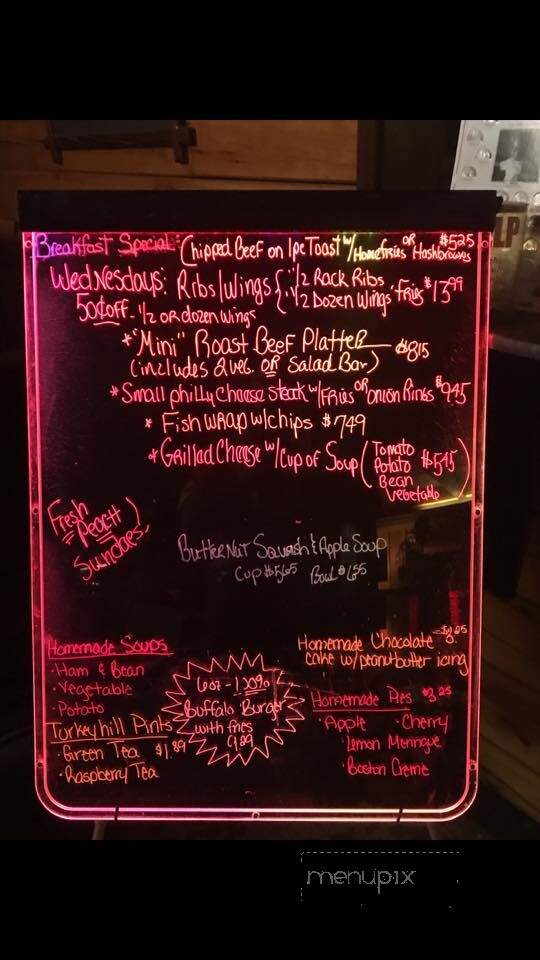 Breakfast Special: Chipped Beef on 1pc Toast w/ Homefries OR Hashbrowns $5.25
Wednesdays: Ribs/Wings { 1/2 Rack Ribs 1/2 Dozen Wings Fries $13.99
50¢ off - 1/2 or dozen wings
* "Mini" Roast Beef Platter $8.15
(includes 2 veg. OR Salad Bar)
* Small philly cheese steak w/ Fries OR onion Rings $9.45
* Fish wrap w/chips $7.49
* Grilled Cheese w/ Cup of Soup ( Tomato $5.45 )
Potato
Bean
Vegetable
Fresh
Peach
Sundaes
Butternut Squash & Apple Soup
Cup $5.65 Bowl $6.55
Homemade Soups
· Ham & Bean
· Vegetable
· Potato
Turkeyhill Pints
· Green Tea $1.89
· Raspberry Tea
6oz - 100%
Buffalo Burger
with fries
Homemade Chocolate
cake w/peanutbutter icing
Homemade Pies $3.25
· Apple · Cherry
· Lemon Meringue
· Boston Creme
LP
menupix